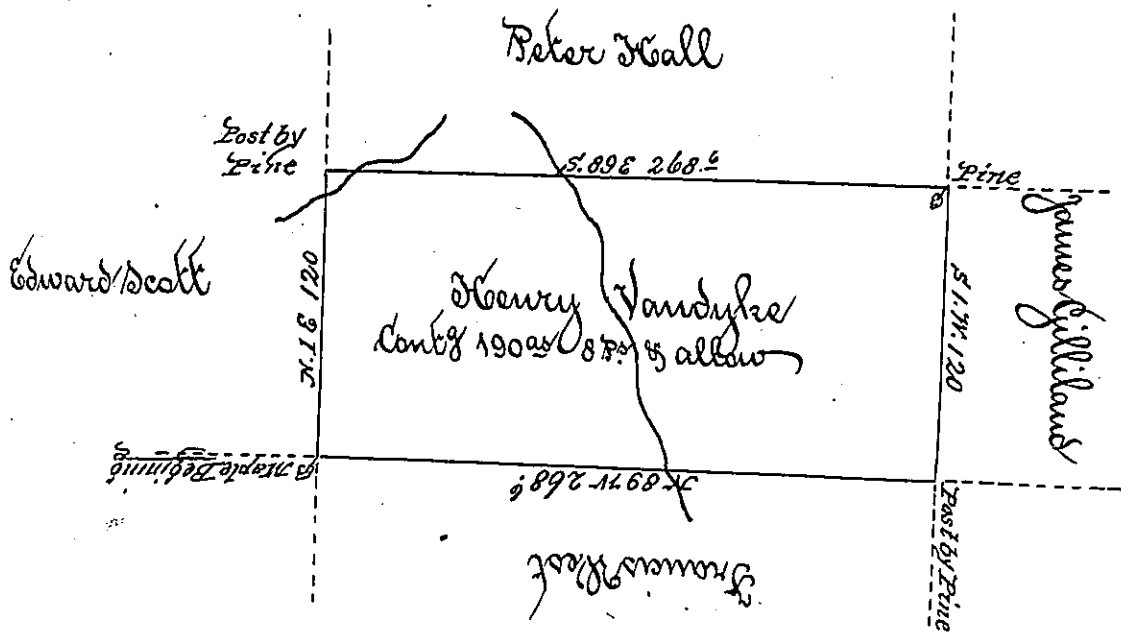 Peter Hall
Post by
Pine
S. 89 E 268.6
Pine
Edward Scott
N. 1 E 120
Henry Vandyke
Contg 190 as 8 Ps. & allow
S. 1. W. 120
James Gilliland
Maple Beginning
N 89 W 268.6
Post by Pine
Francis West